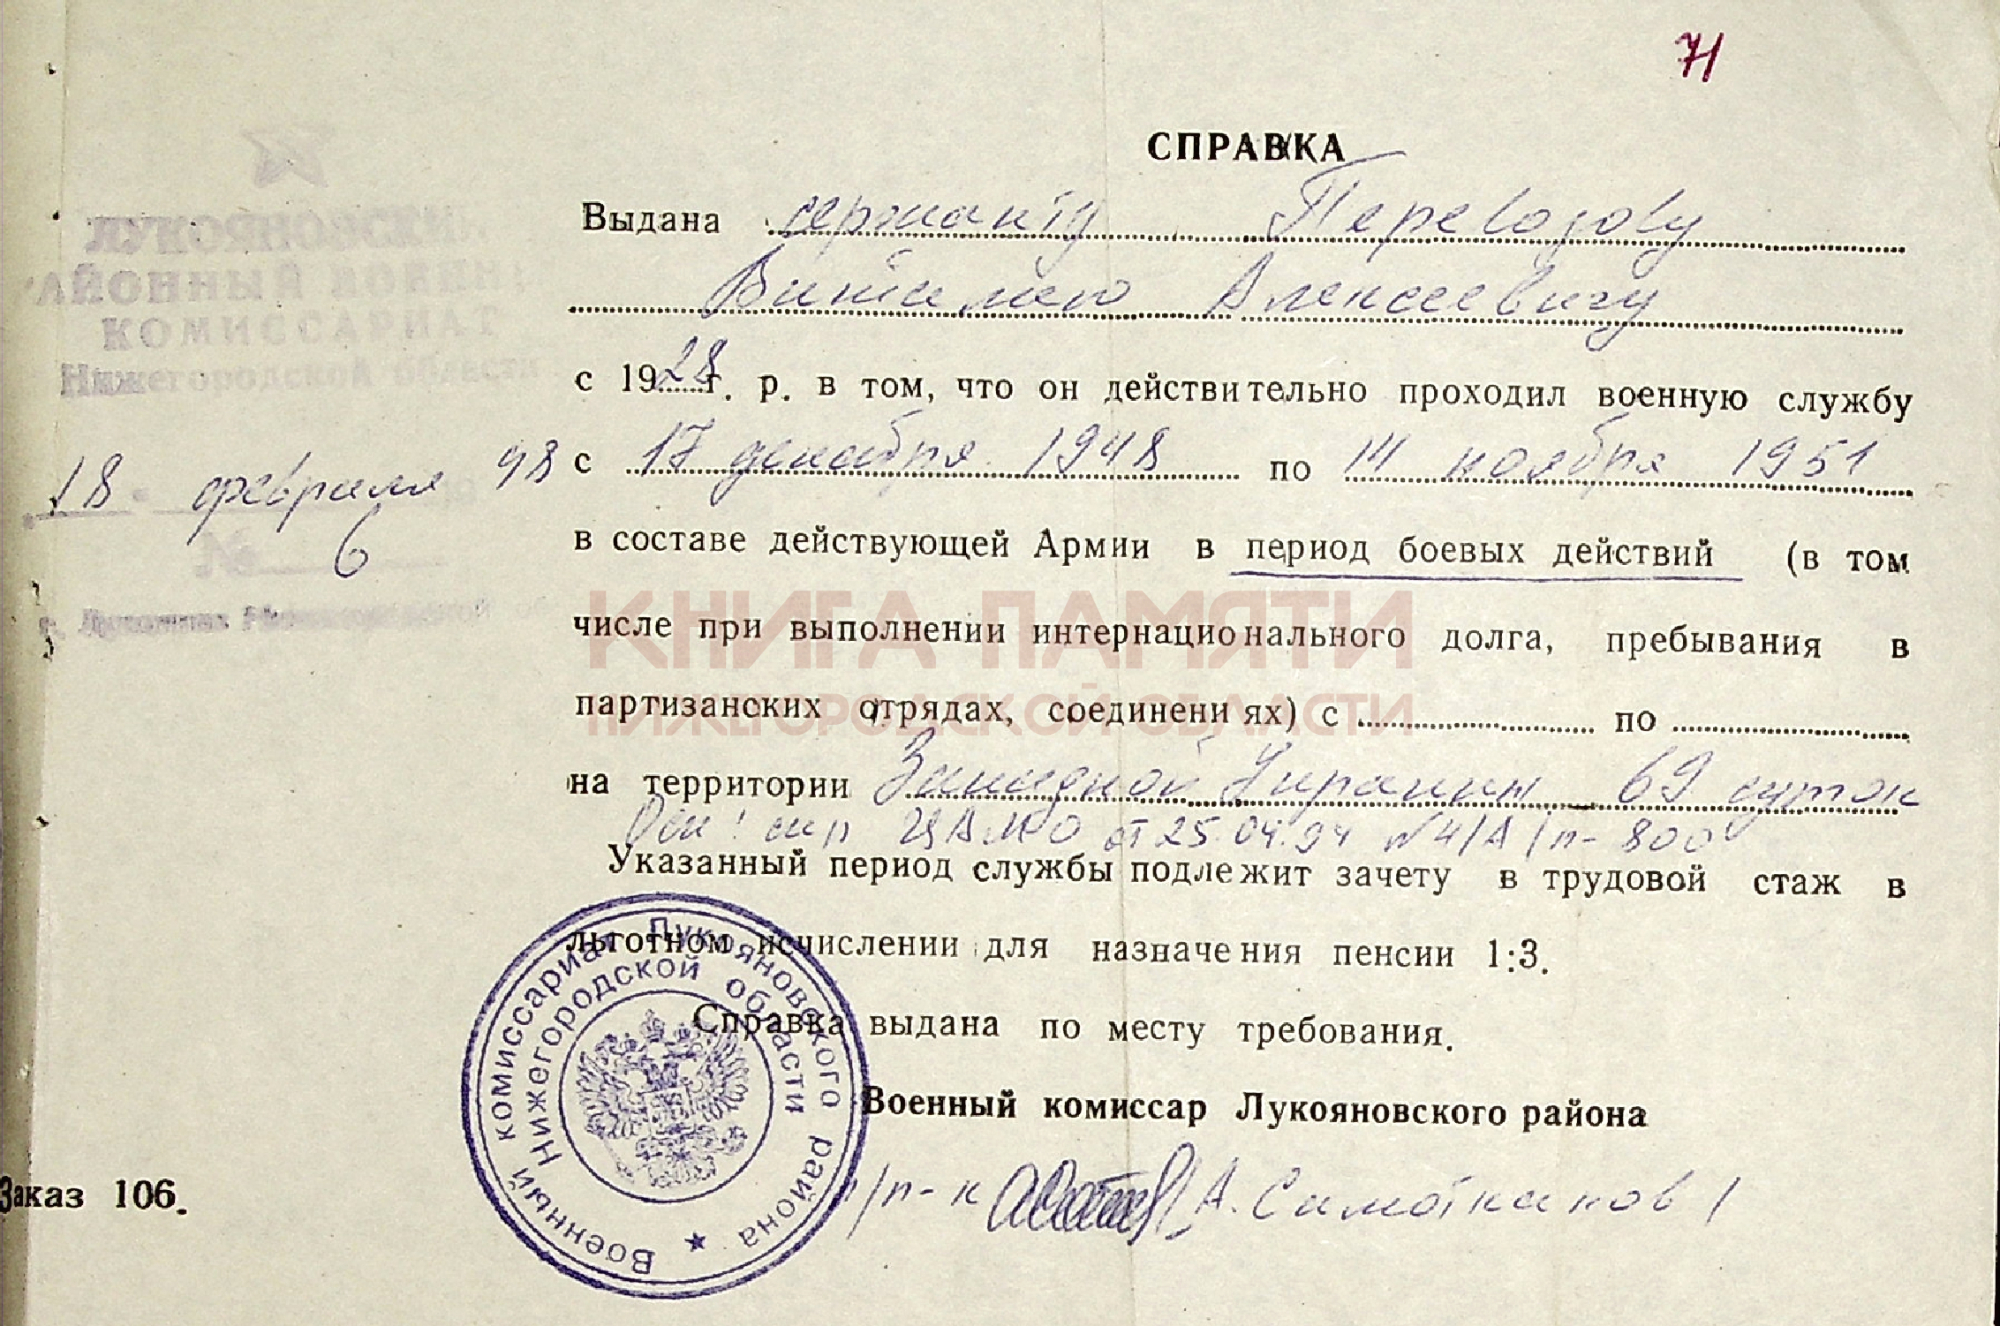 71
СПРАВКА
Выдана сержанту Перевозову
Виталию Алексеевичу
с 1928 г. р. в том, что он действительно проходил военную службу
с 17 декабря 1948 по 14 ноября 1951
в составе действующей Армии в период боевых действий (в том
числе при выполнении интернационального долга, пребывания в
партизанских отрядах, соединениях) с по
на территории Западной Украины 69 суток
Осн: спр ЦАМО от 25.04.94 №4/А/п-800
Указанный период службы подлежит зачету в трудовой стаж в
льготном исчислении для назначения пенсии 1:3.
Справка выдана по месту требования.
Военный комиссар Лукояновского района
п/п-к А. Симоткинов
ЛУКОЯНОВСКИЙ
РАЙОННЫЙ ВОЕННЫЙ
КОМИССАРИАТ
Нижегородской области
18 февраля 98
№ 6
г. Лукоянов Нижегородской
Заказ 106.
Военный комиссариат Лукояновского района
Нижегородской области
КНИГА ПАМЯТИ
НИЖЕГОРОДСКОЙ ОБЛАСТИ